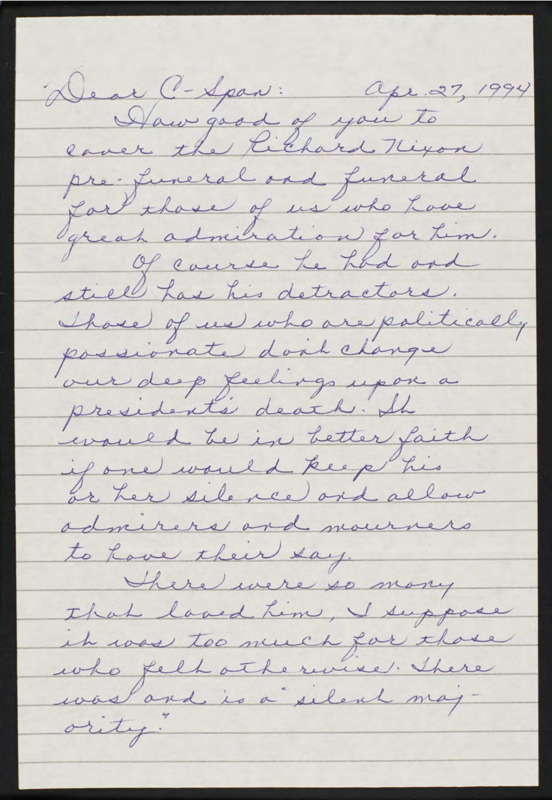 Dear C-Span: Apr. 27, 1994
How good of you to
cover the Richard Nixon
pre-funeral and funeral
for those of us who have
great admiration for him.
Of course he had and
still has his detractors.
Those of us who are politically
passionate don't change
our deep feelings upon a
president's death. It
would be in better faith
if one would keep his
or her silence and allow
admirers and mourners
to have their say.
There were so many
that loved him, I suppose
it was too much for those
who felt otherwise. There
was and is a "silent maj-
ority."